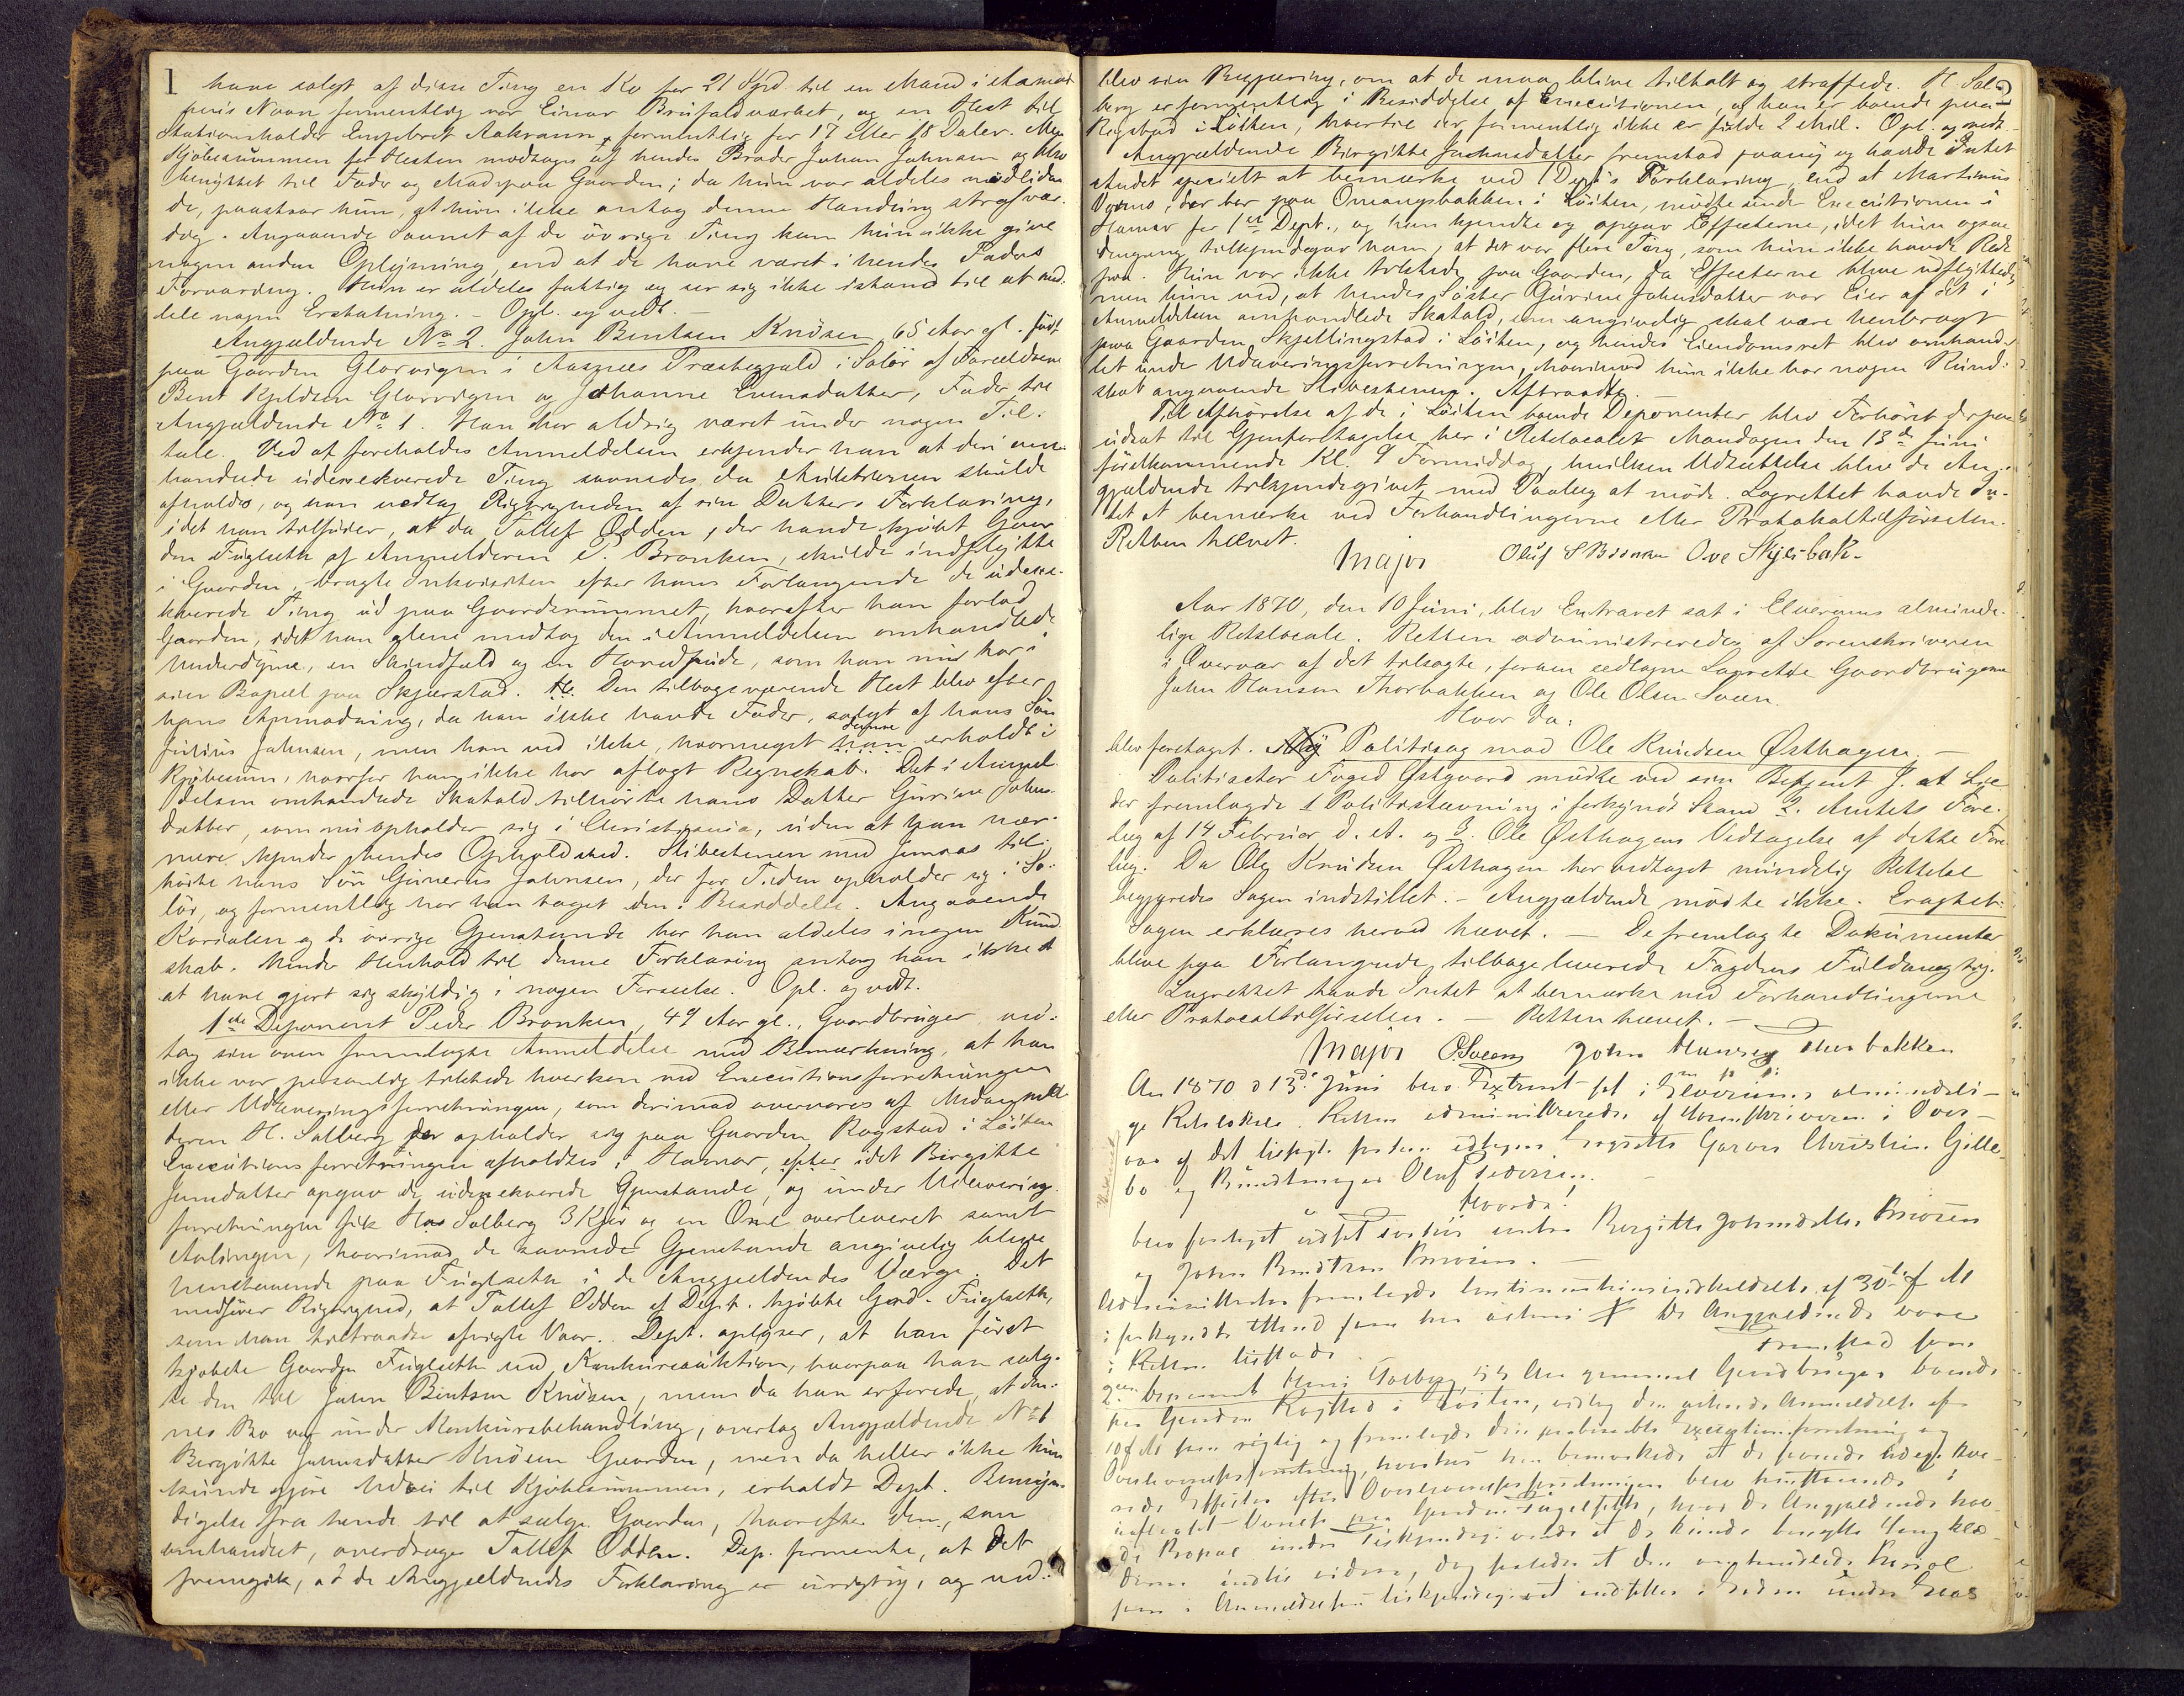 1
have solgt af disse Ting en Ko for 21 Spd. til en Mand i Hamar
hvis Navn formentlig var Einar Brufaldværket, og en Hest til
Stationsholder Engebret Aakrann, formentlig for 17 eller 18 Daler. Men
Kjöbesummen for Hesten modtoges af hendes Broder Johan Johnsen og blev
benyttet til Foder og Mad paa Gaarden; da hun var aldeles nödliden
de, paastaar hun, at hun ikke antog denne Handling strafvær-
dig. Angaaende Savnet af de övrige Ting kan hun ikke give
nogen anden Oplysning, end at de have været i hendes Faders
Forvaring. Hun er aldeles fattig og ser sig ikke istand til at med-
dele nogen Erstatning. – Opl. og vedt. –
Angjældende No 2. John Bentsen Knösen, 65 Aar gl. födt
paa Gaarden Glorvigen i Aasnes Præstegjæld i Solör af Forældrene
Bent Kjeldsen Glorvigen og Johanne Evensdatter, Fader til
Angjældende No 1. Han har aldrig været under nogen Til-
tale. Ved at foreholdes Anmeldelsen erkjender han at de i om-
handlede udexekverede Ting savnedes, da Auktionen skulde
afholdes, og han vedtog Rigtigheden af sin Datters Forklaring,
idet han tilföier, at da Tollef Odden, der havde kjöbt Gaar
den Fuglseth af Anmelderen P. Bronken, skulde indflytte
i Gaarden, bragte Inkvisiten efter hans Forlangende de udexe-
kverede Ting ud paa Gaardsrummet, hvorefter han forlod
Gaarden, idet han alene medtog den i Anmeldelsen omhandlede
Underdyne, en Skindfæld og en Hovedpude, som han nu har i
sin Bopæl paa Skjærstad. Den tilbageværende Hest blev efter
hans Anmodning, da han ikke havde Foder, solgt af hans Sön
Julius Johnsen, men han ved ikke, hvormeget denne erholdt i
Kjöbesum, hvorfor han ikke har aflagt Regnskab. Det i Anmel-
delsen omhandlede Skatold tilhörte hans Datter Gurine Johns-
datter, som nu opholder sig i Christiania, uden at han nær-
mere kjender hendes Opholdssted. Slibestenen med Jernaas til-
hörte hans Sön Gunerius Johnsen, der for Tiden opholder sig i So-
lör, og formentlig har han taget den i Besiddelse. Angaaende
Kariolen og de övrige Gjenstande har han aldeles ingen Kund
skab. Under Henhold til denne Forklaring antog han ikke
at have gjort sig skyldig i nogen Forseelse. Opl. og vedt.
1ste Deponent Peder Bronken, 49 Aar gl., Gaardbruger, ved-
tog sin oven fremlagte Anmeldelse med Bemærkning, at han
ikke var personlig tilstede hverken ved Executionsforretningen
eller Udleveringsforretningen, som derimod overvares af Medanmel
deren H. Solberg der opholder sig paa Gaarden Rogstad i Löiten
Executionsforretningen afholdtes i Hamar, efter idet Birgitte
Jonsdatter opgav de udexekverede Gjenstande, og under Udleverings
forretningen fik Hs Solberg 3 Kjör og en Oxe overleveret samt
Avlingen, hvorimod de savnede Gjenstande angivelig bleve
henstaaende paa Fuglseth i de Angjældendes Værge. Det
medförer Rigtighed, at Tollef Odden af Dept. kjöbte Grd. Fuglseth,
som han tiltraadte afvigte Vaar. Dept. oplyser, at han först
kjöbte Gaarden Fuglseth ved Konkursauktion, hvorpaa han solg-
te den til John Bentsen Knösen, men da han erfarede, at den-
nes Bo var under Konkursbehandling, overtog Angjældende No 1
Birgitte Johnsdatter Knösen Gaarden, men da heller ikke hun
kunde gjöre Udvei til Kjöbesummen, erholdt Dept. Bemyn-
digelse fra hende til at sælge Gaarden, hvorefter den, som
omhandlet, overdroges Tollef Odden. Dep. formente, at det
fremgik, at de Angjældendes Forklaring er urigtig, og ved-
2
blev sin Begjæring, om at de maa blive tiltalt og straffede. H. Sol-
berg er formentlig i Besiddelse af Executionen, og han er boende paa
Rogstad i Löiten, hvortil der formentlig ikke er fulde 2 Mil. Opl. og vedt.
Angjældende Birgitte Johnsdatter fremstod paany og havde Intet
Andet specielt at bemærke ved 1 Dept's Forklaring, end at Martinus
Vgens, der bor paa Omangsbakken i Löiten, mödte under Executionen i
Hamar for 1ste Dept., og han kjendte og opgav Effecterne, idet hun ogsaa
dengang tilkjendegav ham, at det var flere Ting, som hun ikke havde Rede
paa. Hun var ikke tilstede paa Gaarden, da Effecterne bleve udflyttede,
men hun ved, at hendes Söster Gurine Johnsdatter var Eier af det i
Anmeldelsen omhandlede Skatold, som angivelig skal være henbragt
paa Gaarden Skjellingstad i Löiten, og hendes Eiendomsret blev omhand-
let under Udleveringsforretningen, hvorimod hun ikke har nogen Kund-
skab angaaende Slibestenen. Aftraadte. –
Til Afhörelse af de i Löiten boende Deponenter blev Forhöret derpaa
udsat til Gjenforetagelse her i Retslocalet Mandagen den 13de Juni
förstkommende Kl. 9 Formiddag, hvilken Udsættelse blev de An-
gjældende tilkjendegivet med Paalæg at möde. Lagrettet havde In-
tet at bemærke ved Forhandlingerne eller Protokoltilförselen.
Retten hævet.
Major Oluf S Ove Skjesbak
Aar 1870, den 10 Juni, blev Extraret sat i Elverums alminde-
lige Retslocale. Retten administreredes af Sorenskriveren
i Overvær af det tilsagte, forhen edtagne Lagrette Gaardbrugerne
John Hansen Thorbakken og Ole Olsen Sveen.
Hvor da:
blev foretaget. Politisag mod Ole Knudsen Østhagen. –
Politiactor Foged Østgaard mödte ved sin Betjent J. at Lye
der fremlagde 1 Politistævning i forkyndt Stand 2. Amtets Fore-
læg af 14 Februar d. A. og 3. Ole Østhagens Vedtagelse af dette Fore
læg. Da Ole Knudsen Østhagen har vedtaget mindelig Rettelse
begjæredes Sagen indstillet. – Angjældende mödte ikke. Eragtet:
Sagen erklæres herved hævet. – De fremlagte Dokumenter
bleve paa Forlangende tilbageleverede Fogdens Fuldmægtig.
Lagrettet havde Intet at bemærke ved Forhandlingerne
eller Protocoltilförselen. – Retten hævet. –
Major O. Sveen John Hansen Thorbakken
An 1870 d 13de Juni blev Extraret sat i Elverums almindeli-
ge Retslokale. Retten administreredes af Sorenskriveren i Over-
vær af det tilsagte forhen edtagne Lagrette Garver Christian Gille-
bo og Bundtmager Oluf Pedersen.
Hvorda!
blev foretaget udsat Forhör imod Birgitte Johnsdatter Knösen
og John Bendtsen Knösen. –
Administrator fremlagde af 30te f. M
i forkyndt Stand De Angjældende vare
i Retten tilstede. Fremstod som
2den Deponent Hans Solberg, 54 Aar gammel Gaardbruger boende
paa Gaarden Rogstad i Löiten, vedtog den Anmeldelse af
10 f. M som rigtig og fremlagde den Executionsforretning og
Overleveringsforretning, hvorhos han bemærkede at de savnede udexekve-
rede Effecter efter Overleveringsforretningen blev henstaaende i
paa Gaarden Fuglseth, hvor de Angjældende hav-
de Bopæl under Tilkjendegivende at de kunde benytte
indtil videre, dog saaledes at den omhandlede Kariol